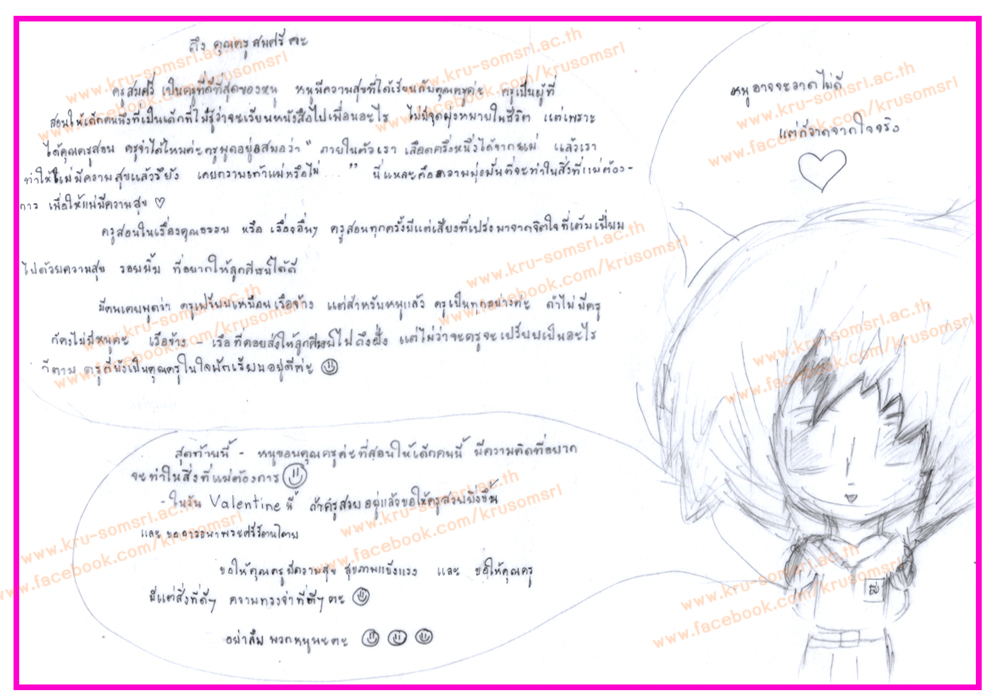 ถึง คุณครูสมศรี ค่ะ
ครูสมศรี เป็นครูที่ดีที่สุดของหนู หนูมีความสุขที่ได้เรียนกับคุณครูค่ะ ครูเป็นผู้ที่
สอนให้เด็กคนหนึ่งที่เป็นเด็กที่ไม่รู้ว่าจะเรียนหนังสือไปเพื่ออะไร ไม่มีจุดมุ่งหมายในชีวิต แต่เพราะ
ได้คุณครูสอน ครูจำได้ไหมค่ะครูพูดอยู่เสมอว่า " ภายในตัวเรา เลือดครึ่งหนึ่งได้จากแม่ แล้วเรา
ทำให้แม่มีความสุขแล้วรึยัง เคยกราบเท้าแม่หรือไม่ ... " นี่แหละคือความมุ่งมั่นที่จะทำในสิ่งที่แม่ต้อง-
การ เพื่อให้แม่มีความสุข ♡
ครูสอนในเรื่องคุณธรรม หรือ เรื่องอื่นๆ ครูสอนทุกครั้งมีแต่เสียงที่เปร่งมาจากจิตใจที่เต็มเปี่ยม
ไปด้วยความสุข รอยยิ้ม ที่อยากให้ลูกศิษย์ได้ดี
มีคนเคยพูดว่า ครูเปรียบเหมือนเรือจ้าง แต่สำหรับหนูแล้ว ครูเป็นทุกอย่างค่ะ ถ้าไม่มีครู
ก็คงไม่มีหนูค่ะ เรือจ้าง - เรือที่คอยส่งให้ลูกศิษย์ไปถึงฝั่ง แต่ไม่ว่าจะครูจะเปรียบเป็นอะไร
ก็ตาม ครูก็ยังเป็นคุณครูในใจนักเรียนอยู่ดีค่ะ ☺
สุดท้ายนี้ - หนูขอบคุณครูค่ะที่สอนให้เด็กคนนี้ มีความคิดที่อยาก
จะทำในสิ่งที่แม่ต้องการ ☺
- ในวัน Valentine นี้ ถ้าครูสวยอยู่แล้วขอให้ครูสวยยิ่งขึ้น
และ ขออาราธนาพระศรีรัตนไตร
ขอให้คุณครูมีความสุข สุขภาพแข็งแรง และ ขอให้คุณครู
มีแต่สิ่งที่ดีๆ ความทรงจำที่ดีๆ ค่ะ ☺
อย่าลืม พวกหนูนะค่ะ ☺ ☺ ☺
หนูอาจจะวาดไม่ดี
แต่ก็วาดจากใจจริง
♡
www.kru-somsri.ac.th
www.facebook.com/krusomsri
www.kru-somsri.ac.th
www.facebook.com/krusomsri
www.kru-somsri.ac.th
www.facebook.com/krusomsri
www.kru-somsri.ac.th
www.facebook.com/krusomsri
www.kru-somsri.ac.th
www.facebook.com/krusomsri
www.kru-somsri.ac.th
www.facebook.com/krusomsri
www.kru-somsri.ac.th
www.facebook.com/krusomsri
www.kru-somsri.ac.th
www.facebook.com/krusomsri
www.kru-somsri.ac.th
www.facebook.com/krusomsri